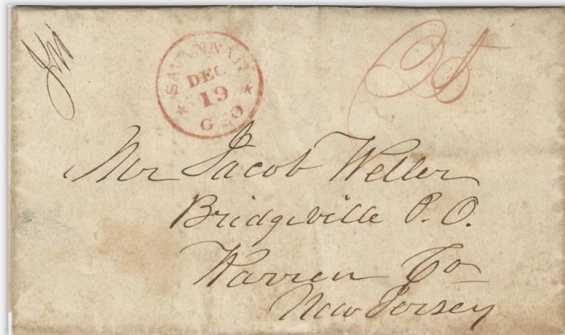 SAVANNAH
DEC
19
GEO
Mr Jacob Weller
Bridgeville P. O.
Warren Co
New Jersey